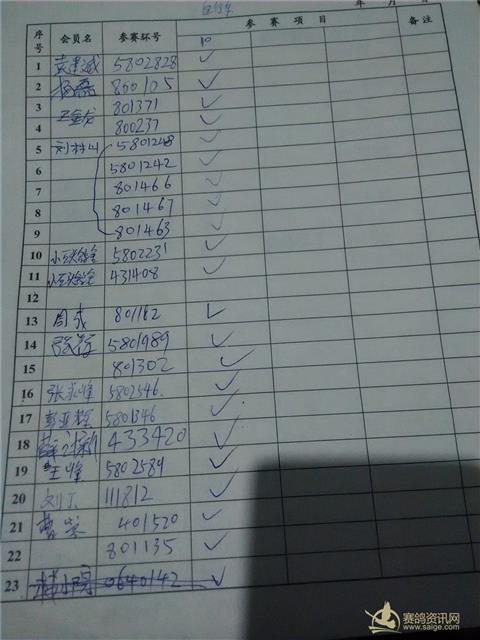 年 月
序号 会员名 参赛环号 参赛项目 备注
10
1 袁建诚 5802828 ✓
2 杨磊 800105 ✓
3 王金龙 801371 ✓
4 800237 ✓
5 刘林山 5801248 ✓
6 5801242 ✓
7 801466 ✓
8 801467 ✓
9 801463 ✓
10 5802231 ✓
11 431408 ✓
12
13 周成 801162 ✓
14 5801989 ✓
15 801302 ✓
16 张永峰 5802546 ✓
17 5801346 ✓
18 433420 ✓
19 王峰 5802589 ✓
20 刘丁 111812 ✓
21 曹荣 401520 ✓
22 801135 ✓
23 0640142 ✓
赛鸽资讯网
www.saige.com